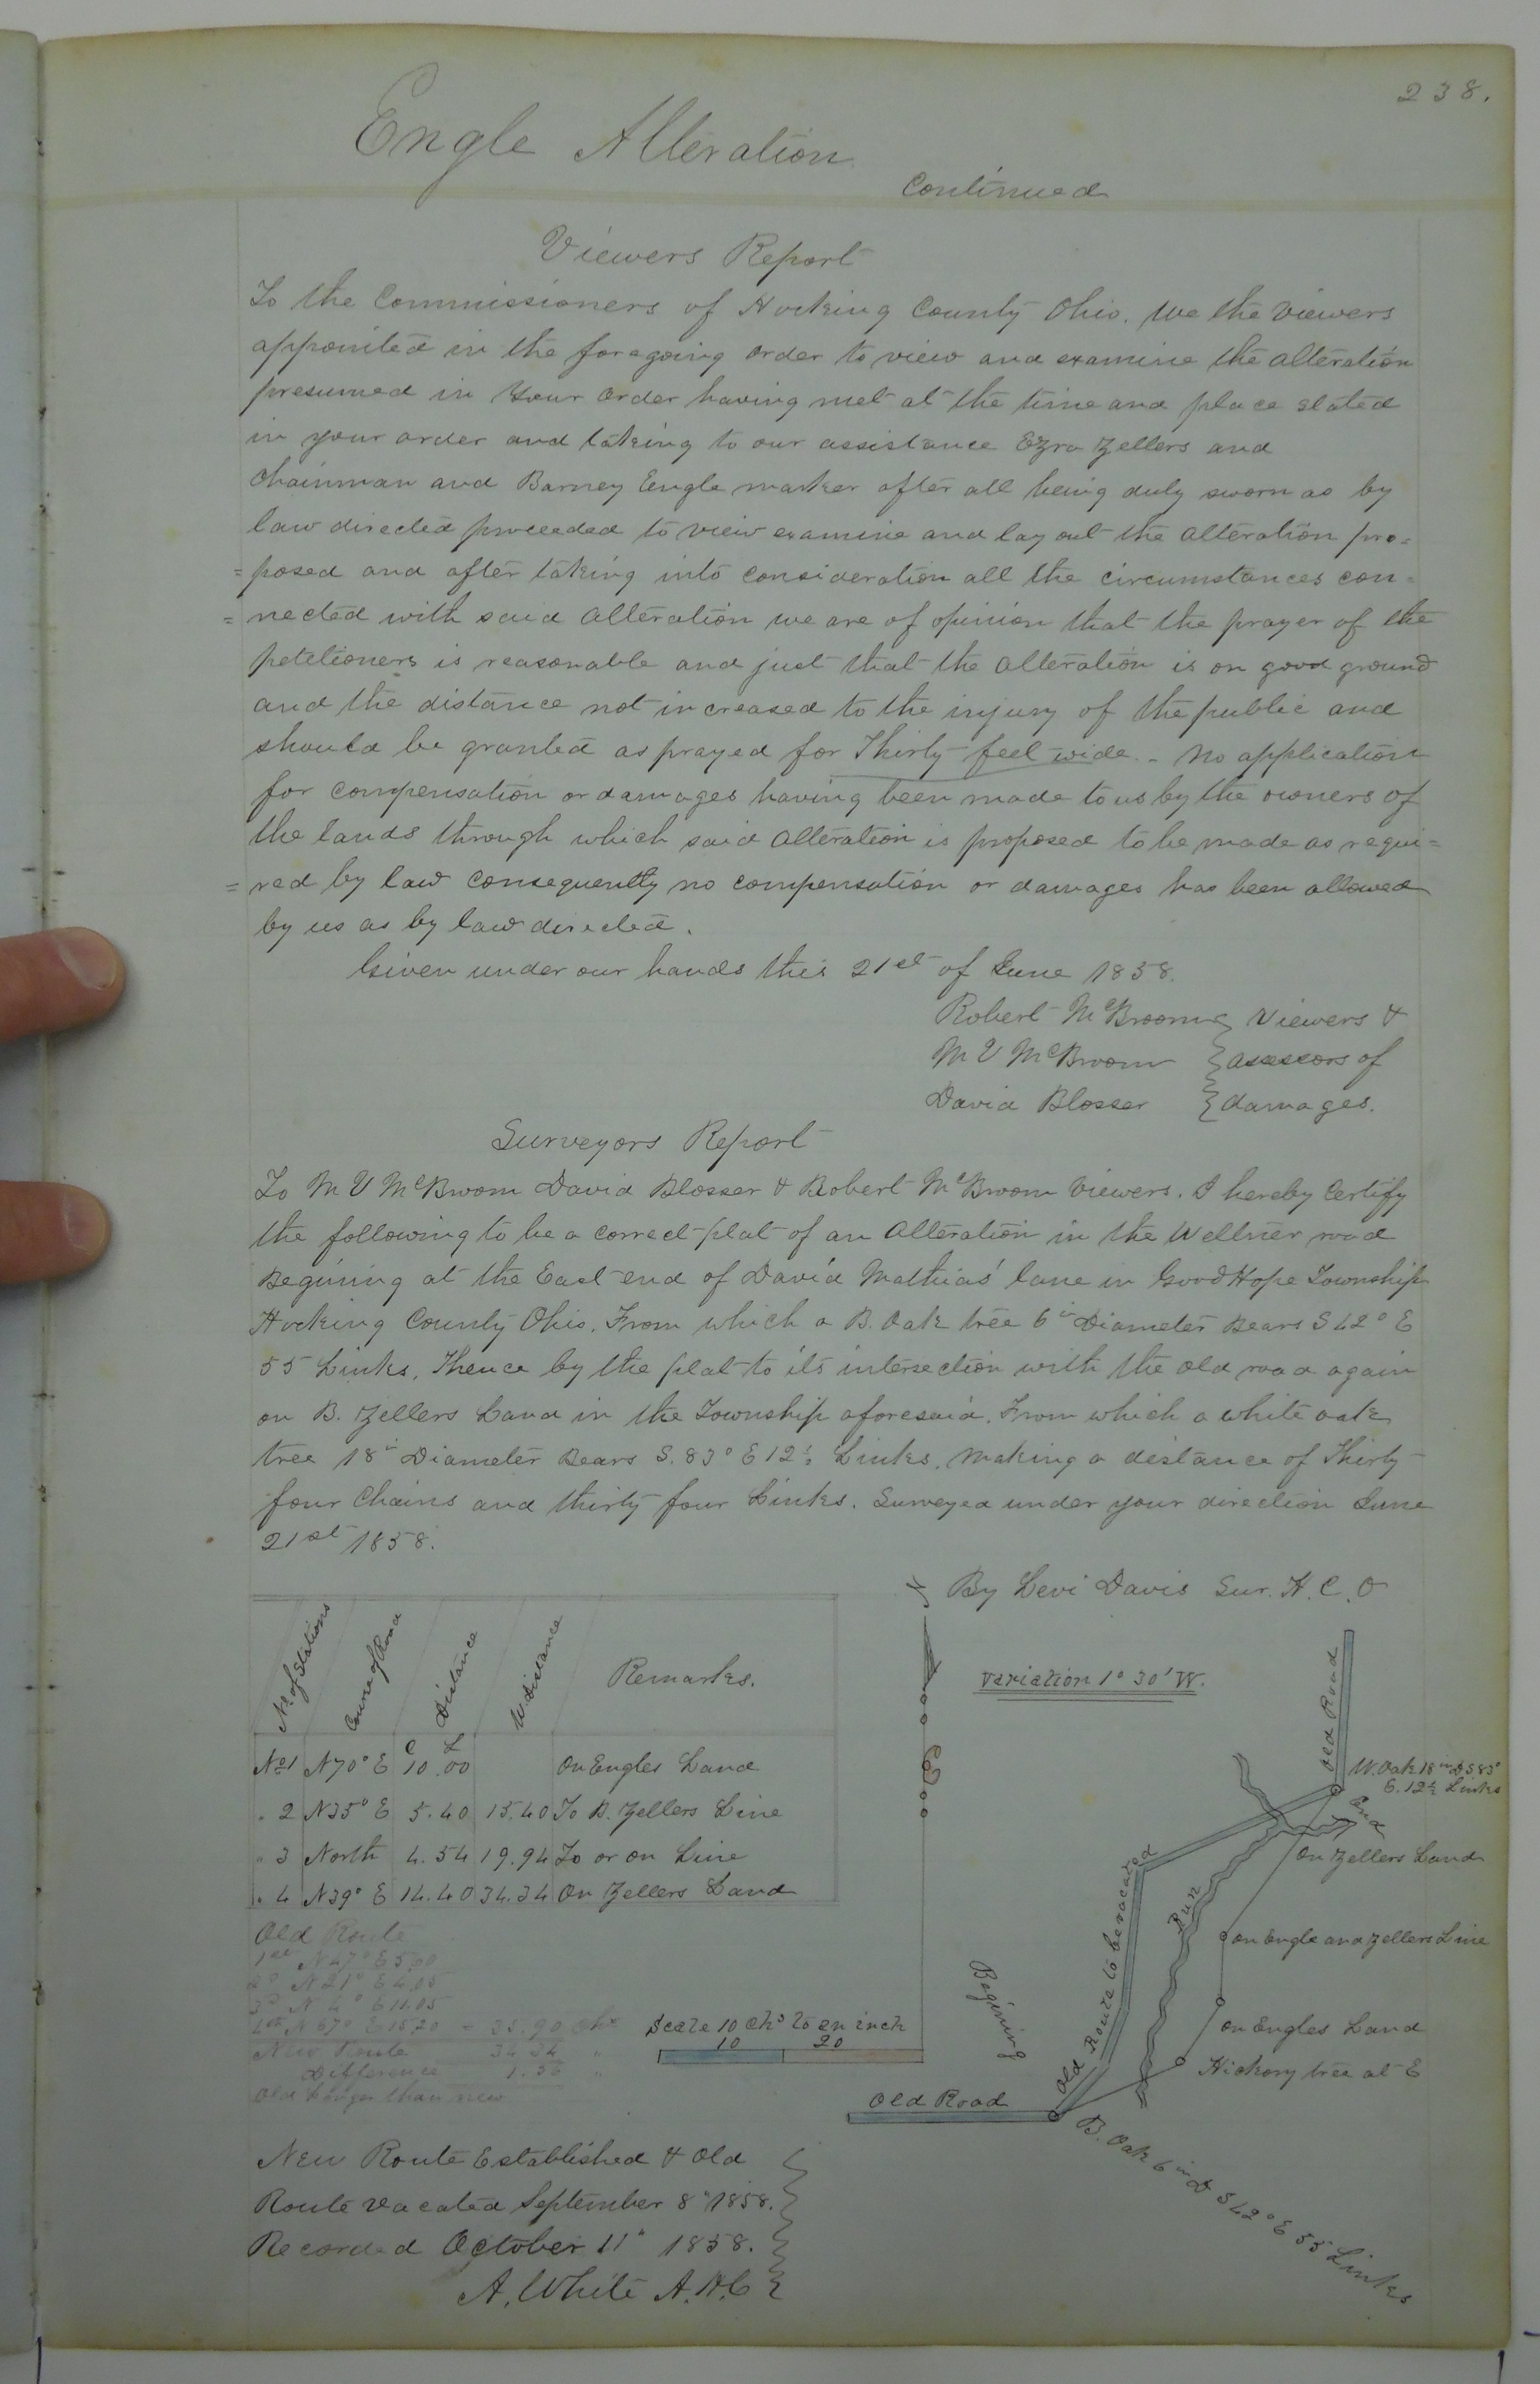 238.
Engle Alteration
Continued
Viewers Report
To the Commissioners of Hocking County Ohio. We the viewers
appointed in the foregoing order to view and examine the alteration
presumed in your order having met at the time and place stated
in your order and taking to our assistance Ezra Zellers and
Chainman and Barney Engle marker after all being duly sworn as by
law directed proceeded to view examine and lay out the alteration pro=
=posed and after taking into consideration all the circumstances con=
=nected with said alteration we are of opinion that the prayer of the
petetioners is reasonable and just that the alteration is on good ground
and the distance not increased to the injury of the public and
should be granted as prayed for Thirty feet wide. - No application
for compensation or damages having been made to us by the owners of
the lands through which said alteration is proposed to be made as requi=
=red by law consequently no compensation or damages has been allowed
by us as by law directed.
Given under our hands this 21st of June 1858.
Robert McBroom } Viewers &
M V McBroom } assessors of
David Blosser } damages.
Surveyors Report
To M V McBroom David Blosser & Robert McBroom Viewers. I hereby Certify
the following to be a correct plat of an Alteration in the Wellner road
Begining at the East end of David Mathias' lane in Good Hope Township
Hocking County Ohio. From which a B. Oak tree 6 in Diameter Bears S 42° E
55 Links, Thence by the plat to its intersection with the old road again
on B. Zellers Land in the Township aforesaid. From which a white oak
tree 18 in Diameter Bears S. 83° E 12½ Links, making a distance of Thirty
four Chains and thirty four Links. Surveyed under your direction June
21st 1858.
By Levi Davis Sur. H. C. O
No. of Stations Course of Road Distance W. Distance Remarks.
C L
No 1 N 70° E 10.00 On Engles Land
" 2 N 35° E 5.40 15.40 To B. Zellers Line
" 3 North 4.54 19.94 To or on Line
" 4 N 39° E 14.40 34.34 On Zellers Land
Old Route
1st N 47° E 5.00
2d N 21° E 4.05
3d N 4° E 11.05
4th N 67° E 15.20 = 35.90 Chs
New Route 34.34 "
Difference 1.56 "
Old longer than new
Variation 1° 30' W.
Old Road
W. Oak 18 in D S 83°
E. 12½ Links
End
On Zellers Land
Run
On Engle and Zellers Line
On Engles Land
Hickory tree at E
Old Route to be vacated
Begining
Scale 10 Chs to an inch
10 20
Old Road
B. Oak 6 in D S 42° E 55 Links
New Route Established & Old
Route vacated September 8" 1858.
Recorded October 11" 1858.
A. White A.H.C